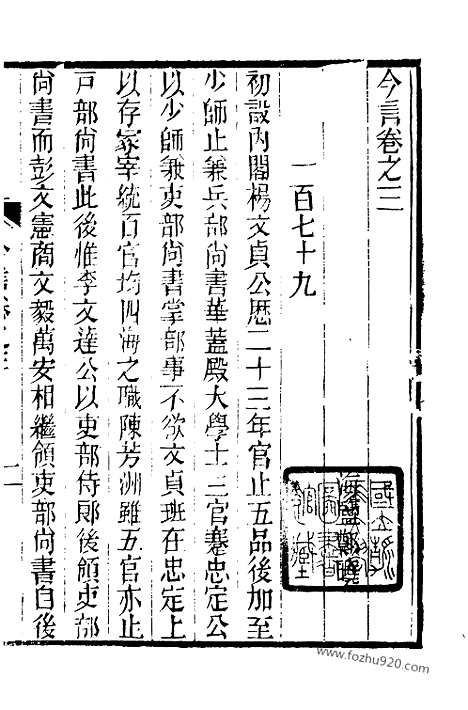 今言卷之三
海鹽鄭曉
一百七十九
初設內閣楊文貞公歷二十三年官止五品後加至
少師止兼兵部尚書華蓋殿大學士三官蹇忠定公
以少師兼吏部尚書掌部事不欲文貞班在忠定上
以存冢宰統百官均四海之職陳芳洲雖五官亦止
戸部尚書此後惟李文達公以吏部侍郎後領吏部
尚書而彭文憲商文毅萬安相繼領吏部尚書自後
www.fozhu920.com